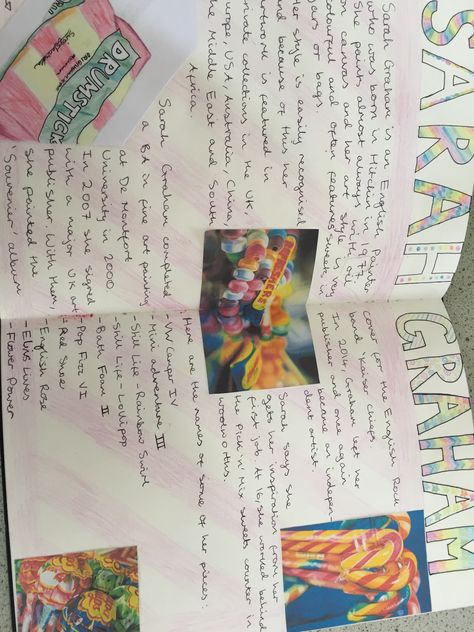 SARAH
GRAHAM
Sarah Graham is an English Painter
who was born in Hitchin in 1977.
She paints almost always with oil
on canvas and her art style is very
colourful and often features sweets in
jars or bags.
Her style is easily recognised
and because of this her
artwork is featured in
private collections in the UK,
Europe, USA, Australia, China,
the Middle East and South
Africa.
DRUMSTICK
Sarah Graham completed
a BA in fine art painting
at De Montfort
University in 2000.
In 2007 she signed
with a major UK art
publisher. With them,
she painted the
'Souvenir' album
cover for the English Rock
band 'Kaiser Chiefs'
In 2014, Graham left her
publisher and once again
became an indepen-
dent artist.
Sarah says she
gets her inspiration from her
first job. At 16, she worked behind
the Pick 'n' Mix sweets counter in
Woolworths.
Here are the names of some of her pieces:
- VW Camper IV
- Mini adventure III
- Still Life - Rainbow Swirl
- Still Life - Lollipop
- Bath Foam II
- Pop Fizz VI
- Red Shoe
- English Rose
- Elvis Lives
- Flower Power